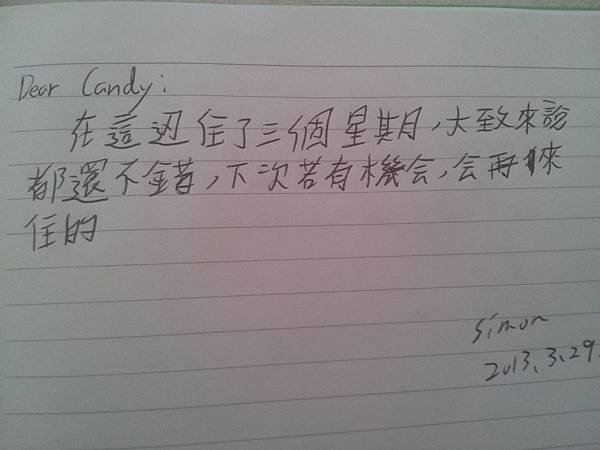 Dear Candy:
在這边住了三個星期,大致來說
都還不錯,下次若有機会,会再來
住的
Simon
2013.3.29.